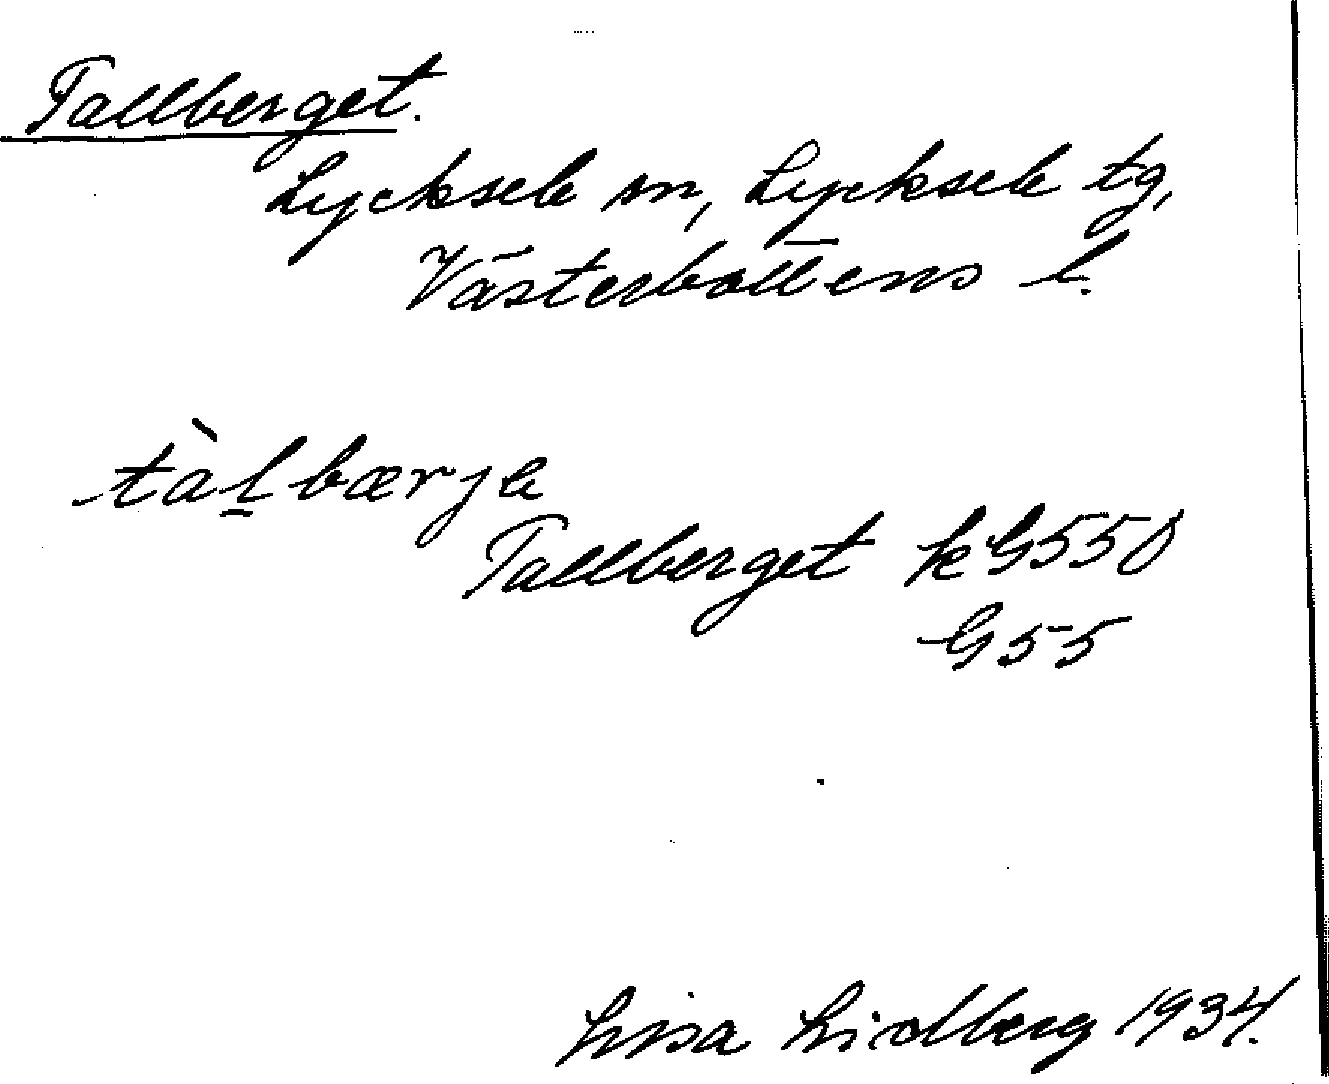 Tallberget.
Lycksele sn, Lycksele tg,
Västerbottens l.
tàl̲bærjɐ
Tallberget kG550
G55
Lisa Lidberg 1934.